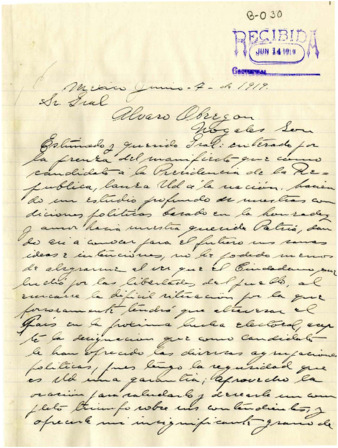 B-030
RECIBIDA
JUN 14 1919
Mexico Junio-7- de 1919.
Sr Gral
Alvaro Obregon
Nogales Son
Estimado y querido Gral: enterado por
la prensa del manifiesto que como
candidato a la Presidencia de la Re-
publica, lanza Ud a la nación, hacien
do un estudio profundo de nuestras con
diciones politicas basado en la honradez
y amor hacia nuestra querida Patria, dan
do asi a conocer para el futuro sus sanas
ideas e intenciones, no he podido menos
de alegrarme al ver que el Ciudadano que
luchó por las libertades del pueblo, al
la dificil situacion por la que
forzosamente tendrá que atravesar el
Pais en la proxima lucha electoral, acep
te la designacion que como candidato
le han ofrecido las diversas agrupaciones
politicas, pues tengo la seguridad que
es Ud una garantia; aprovecho la
ocasion para saludarlo y desearle un com
pleto triunfo sobre sus contendientes y
ofrecerle mi insignificante grano de